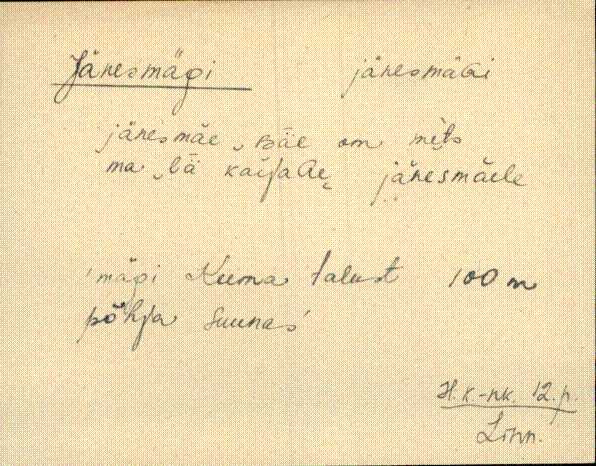 Jänesmägi jänesmäGi
jänesmäe om mets
ma lä jänesmäele
'mägi Kuema talust 100 m
põhja suunas'
H.k-nk. 12.p.
Linn.